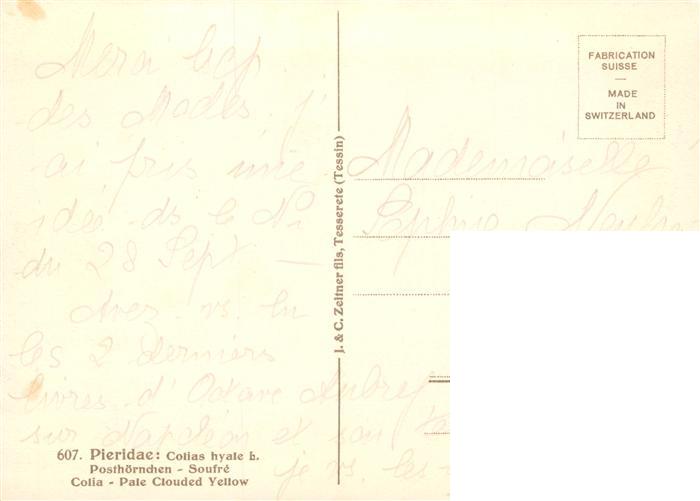 Merci bcp
des Modes j'
ai pris une
idée ds le No
du 28 Sept —
Avez-vs. lu
les 2 derniers
livres d'Octave Aubry
sur Napoléon et son
je vs. les
607. Pieridae: Colias hyale L.
Posthörnchen - Soufré
Colia - Pale Clouded Yellow
J. & C. Zeltner fils, Tesserete (Tessin)
FABRICATION
SUISSE
—
MADE
IN
SWITZERLAND
Mademoiselle